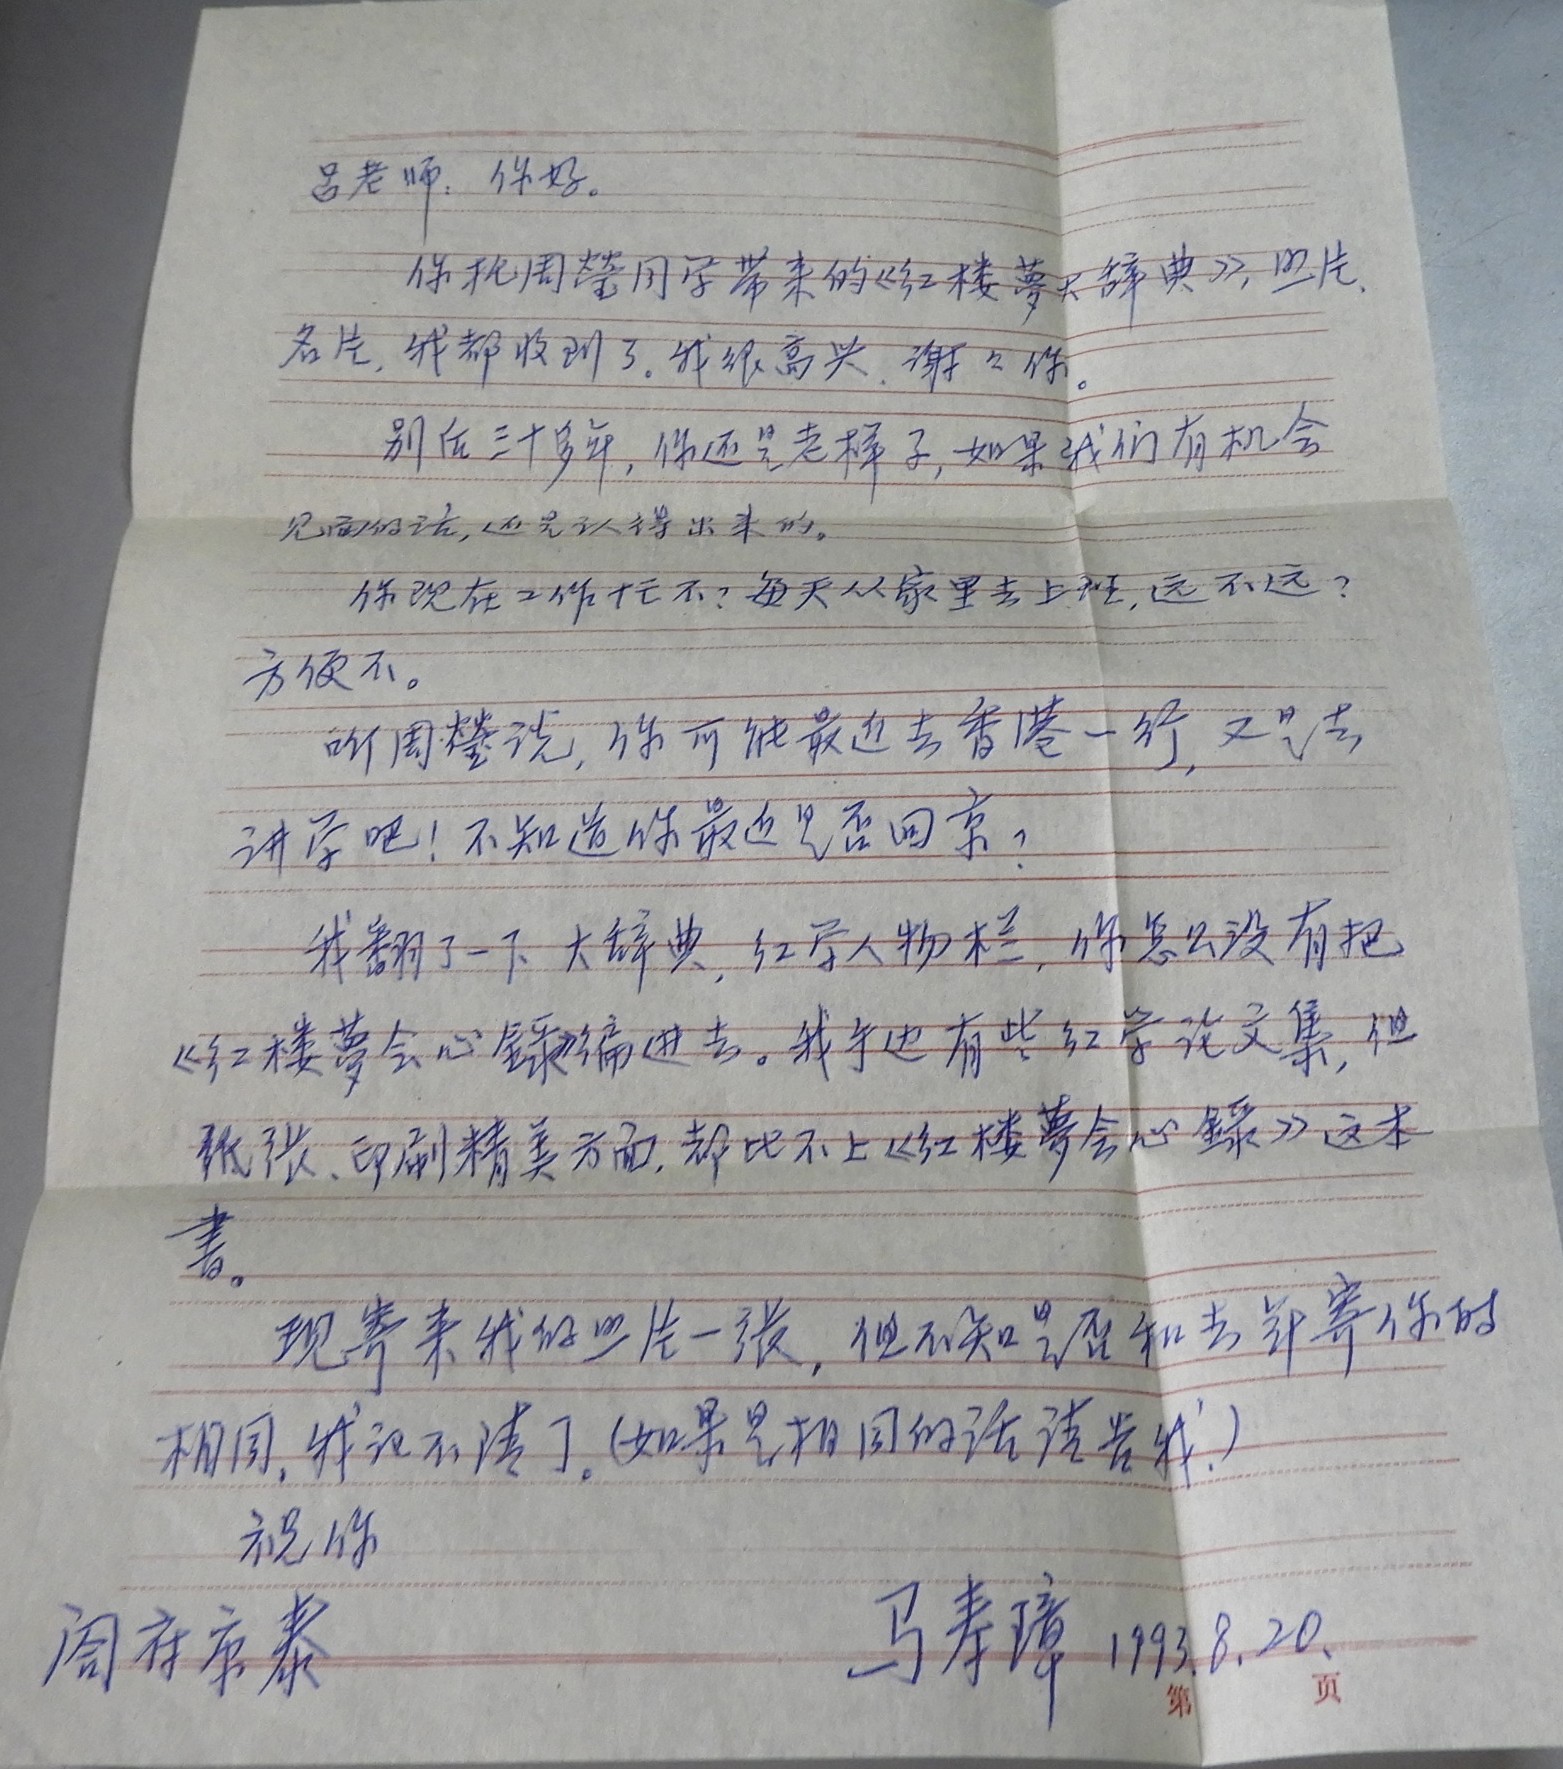 吕老师：你好。
你托周莹同学带来的《红楼夢大辞典》，照片、
名片，我都收到了。我很高兴，谢々你。
别后三十多年，你还是老样子，如果我们有机会
见面的话，还是认得出来的。
你现在工作忙不？每天从家里去上班，远不远？
方便不。
听周莹说，你可能最近去香港一行，又是去
讲学吧！不知道你最近是否回京？
我翻了一下大辞典，红学人物栏，你怎么没有把
《红楼夢会心録》编进去。我手边有些红学论文集，但
纸张、印刷精美方面，都比不上《红楼夢会心録》这本
書。
现寄来我的照片一张，但不知是否和去年寄你的
相同，我记不清了。（如果是相同的话请告我！）
祝你
阖府康泰
马孝璋 1993.8.20.
第 页